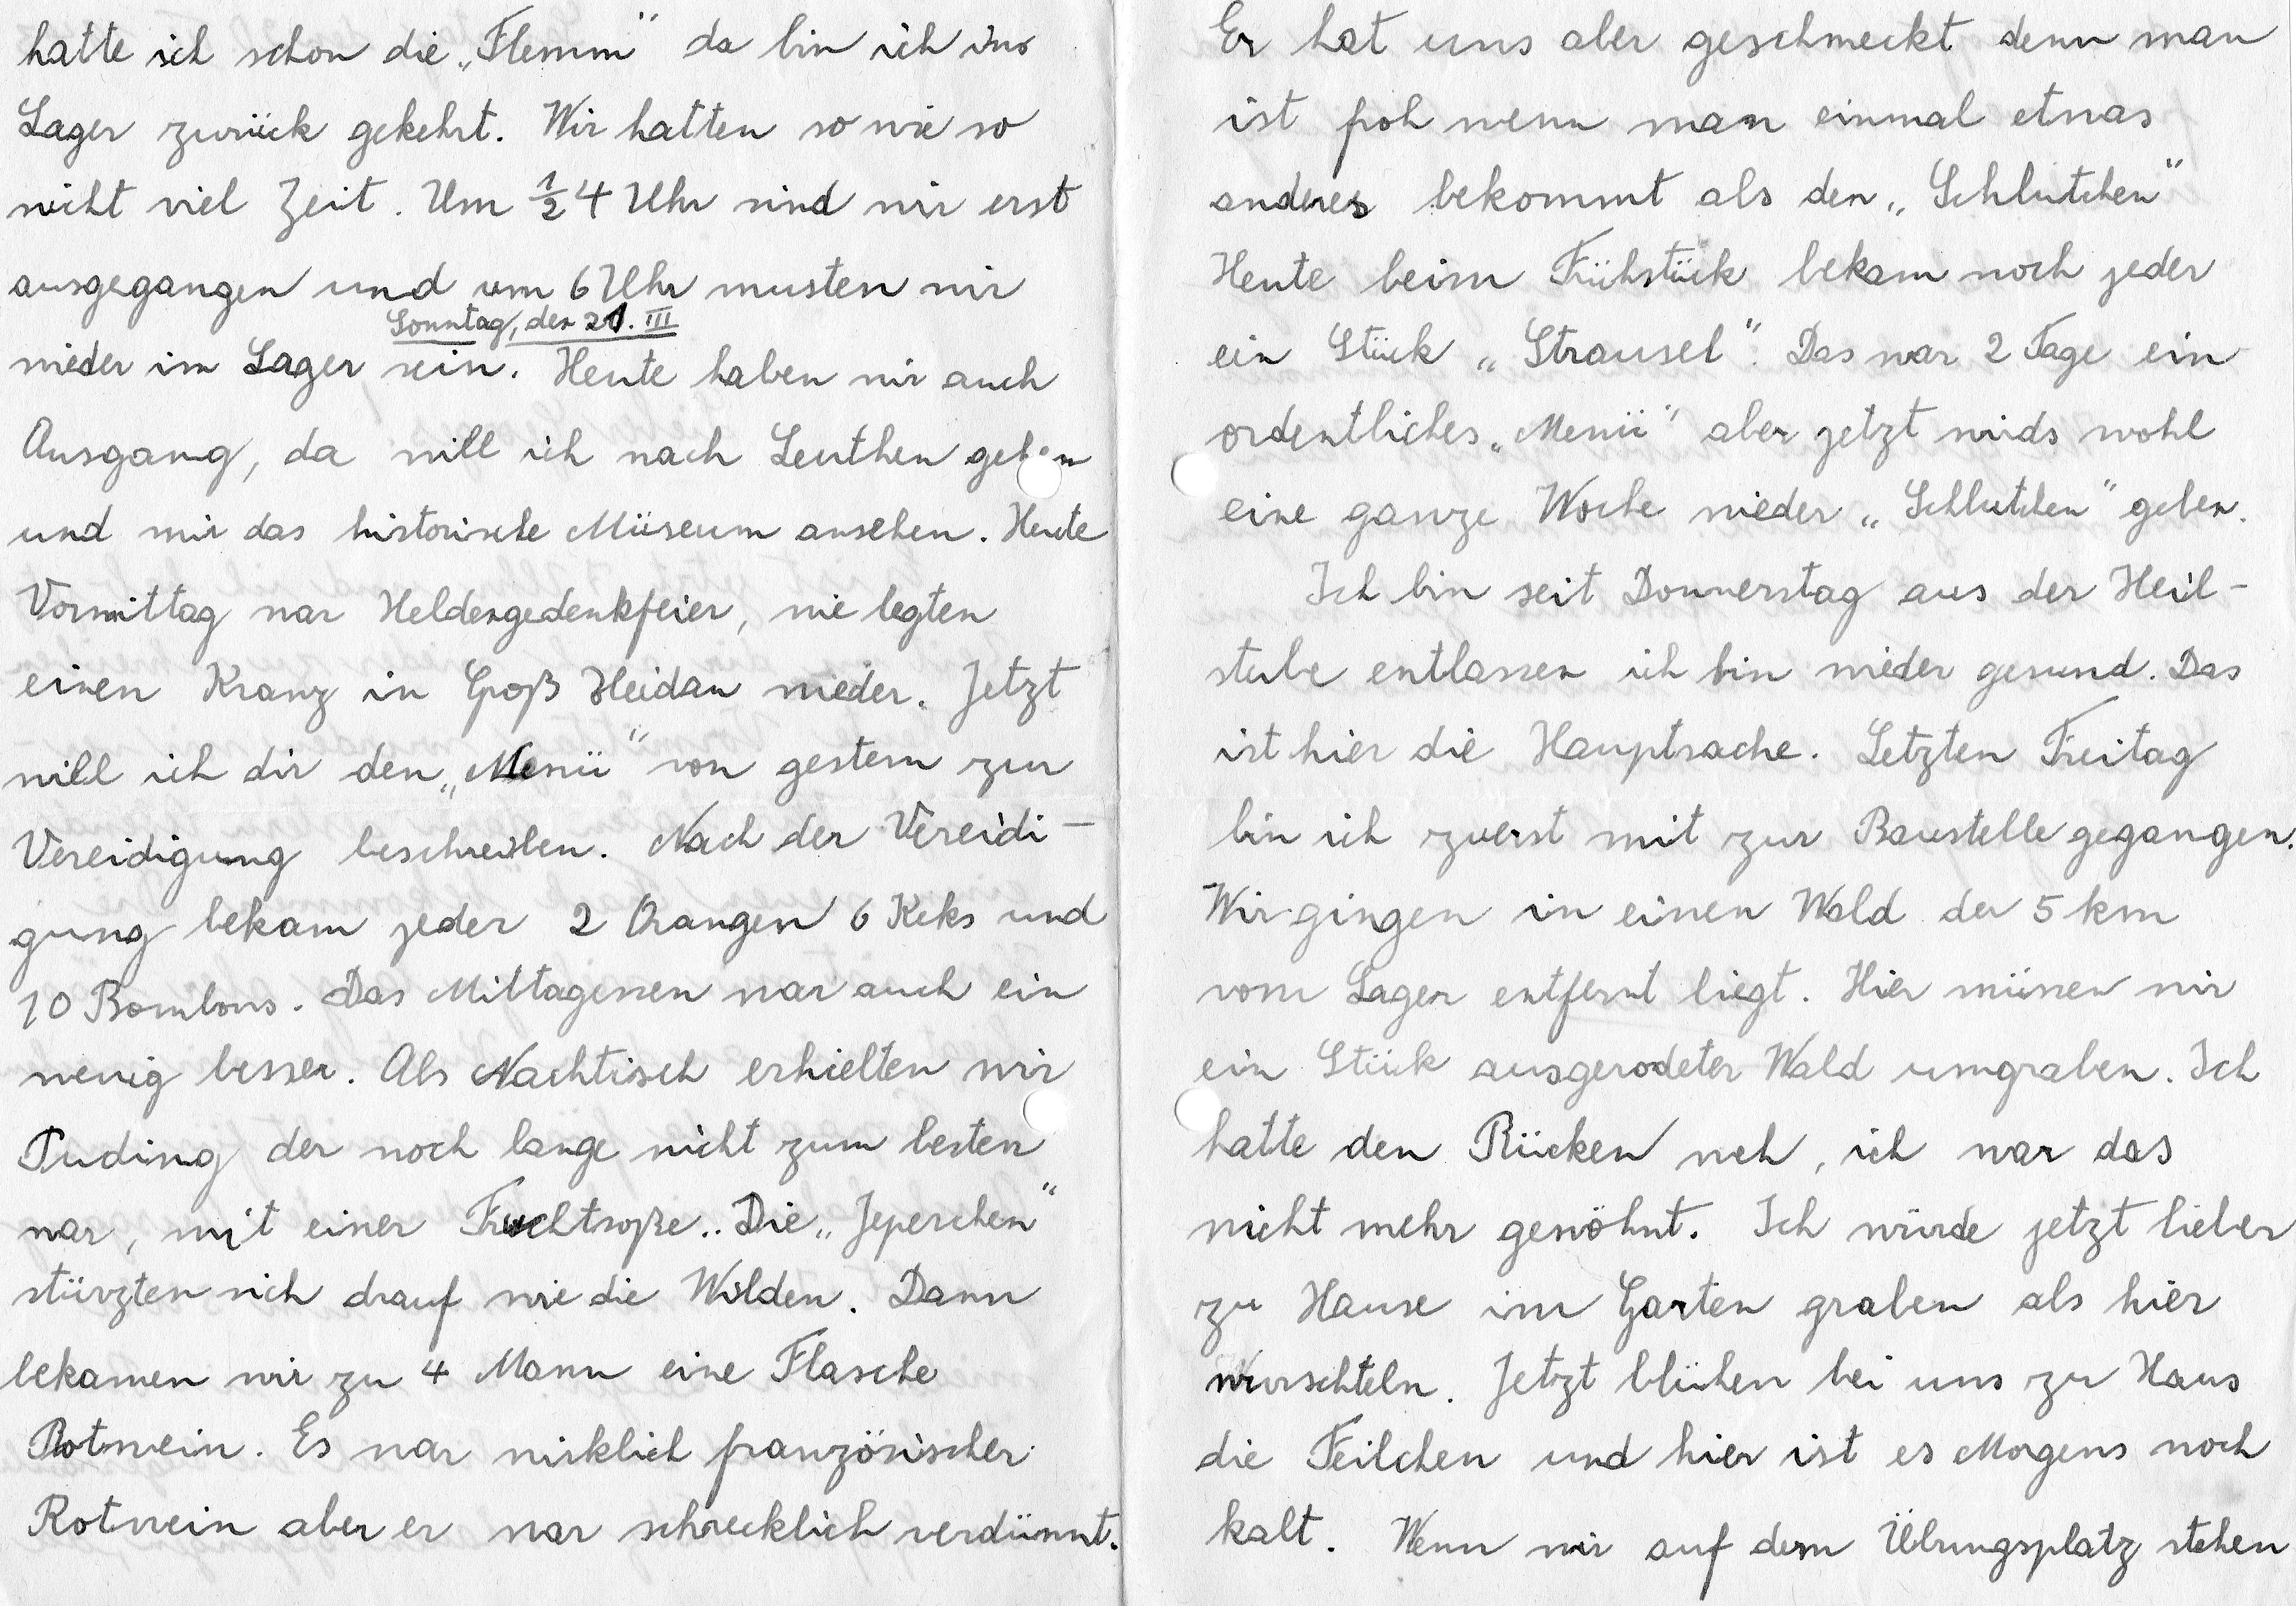 hatte ich schon die „Flemm" da bin ich ins
Lager zurück gekehrt. Wir hatten so wie so
nicht viel Zeit. Um ½ 4 Uhr sind wir erst
ausgegangen und um 6 Uhr musten wir
Sonntag, den 21. III
wieder im Lager sein. Heute haben wir auch
Ausgang, da will ich nach Leuthen gehen
und mir das historische Müseum ansehen. Heute
Vormittag war Heldengedenkfeier, wie legten
einen Kranz in Groß Heidau nieder. Jetzt
will ich dir den „Menü" von gestern zur
Vereidigung beschreiben. Nach der Vereidi-
gung bekam jeder 2 Orangen 6 Keks und
10 Bombons. Das Mittagessen war auch ein
wenig besser. Als Nachtisch erhielten wir
Puding der noch lange nicht zum besten
war, mit einer Fruchtsoße.. Die „Jeperchen"
stürzten sich drauf wie die Wilden. Dann
bekamen wir zu 4 Mann eine Flasche
Rotwein. Es war wirklich französischer
Rotwein aber er war schrecklich verdünnt.
Er hat uns aber geschmeckt denn man
ist froh wenn man einmal etwas
anderes bekommt als den „Schlutchen"
Heute beim Frühstük bekam noch jeder
ein Stück „Strausel". Das war 2 Tage ein
ordentliches „Menü" aber jetzt wirds wohl
eine ganze Woche wieder „Schlutchen" geben.
Ich bin seit Donnerstag aus der Heil-
stube entlassen ich bin wieder gesund. Das
ist hier die Hauptsache. Letzten Freitag
bin ich zuerst mit zur Baustelle gegangen.
Wir gingen in einen Wald der 5 km
vom Lager entfernt liegt. Hier müssen wir
ein Stück ausgerodeter Wald umgraben. Ich
hatte den Rücken weh, ich war das
nicht mehr gewöhnt. Ich würde jetzt lieber
zu Hause im Garten graben als hier
wurschteln. Jetzt blühen bei uns zu Haus
die Feilchen und hier ist es Morgens noch
kalt. Wenn wir auf dem Übungsplatz stehen